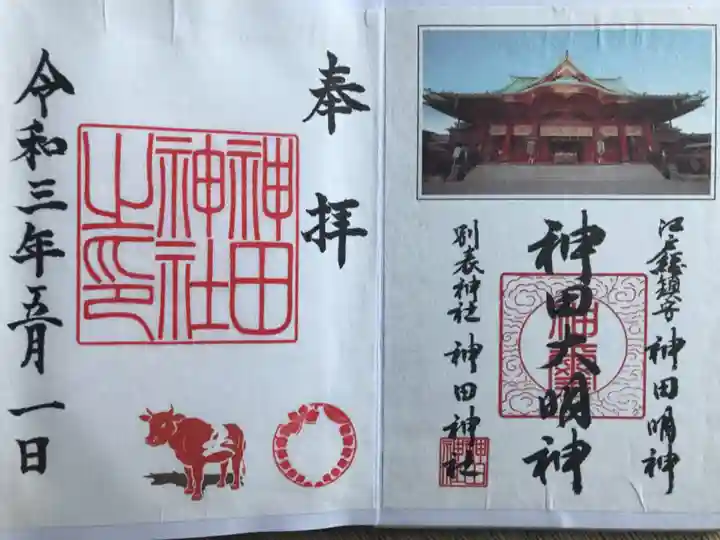 奉拝
神田
神社
之印
令和三年五月一日
江戸総鎮守 神田明神
神田大明神
別表神社 神田神社
神田
神社